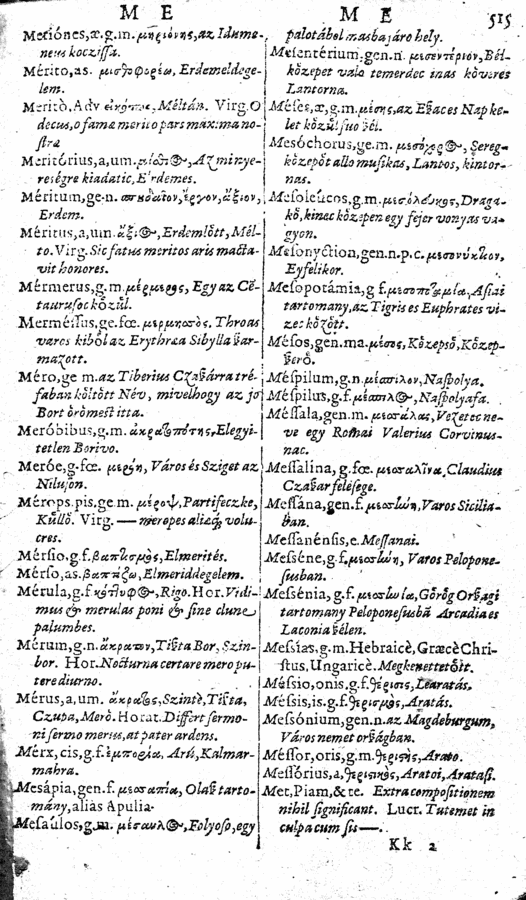 M E
M E
515
Meriónes, æ, g.m. μηριόνης, az Idume-
neus kocziſſa.
Mérito, as. μισθοφορέω, Erdemeldege-
lem.
Meritò, Adv Méltán. Virg. O
decus, o fama merito pars maxima no-
ſtra
Meritórius, a, um. Az minye-
reſégre kiadatic, Erdemes.
Méritum, ge-n. ἔργον, ἄξιον,
Erdem.
Méritus, a, um. ἄξι⊕, Erdemlött, Mél-
to. Virg. Sic fatus meritos aris macta-
vit honores.
Mérmerus, g.m. μέρμερος, Egy az Cē-
tauruſoc közzül.
Merméſſus, ge. fœ. μερμησσὸς. Throas
varos kiböl az Erythræa Sibylla ßar-
mazott.
Méro, ge m. az Tiberius Czaßárra tré-
faban költött Név, mivelhogy az jo
Bort örömeſt itta.
Meróbibus, g.m. ἀκρατοπότης, Elegyi-
tetlen Borivo.
Meróe, g. fœ. μερόη, Város és Sziget az
Niluſon.
Mérops. pis, ge m. μέροψ, Partifeczke,
Küllö. Virg. — meropes aliæq; volu-
cres.
Mérſio, g.f. βαπτισμὸς, Elmerités.
Mérſo, as. βαπτίζω, Elmeriddegelem.
Mérula, g.f κότυφ⊕, Rigo. Hor. Vidi-
mus & merulas poni & ſine clune
palumbes.
Mérum, g.n. ἄκρατον, Tißta Bor, Szin-
bor. Hor. Nocturna certare mero pu-
tere diurno.
Mérus, a, um. ἄκρατος, Szintè, Tißta,
Czupa, Merö. Horat. Differt ſermo-
ni ſermo merus, at pater ardens.
Mérx, cis, g.f. ἐμπορία, Arú, Kalmar-
mahra.
Mesápia, gen. f. μεσαπία, Olaß tarto-
mány, alias Apulia.
Meſaúlos, g.m. μέσαυλ⊕, Folyoſo, egy
palotábol masba járo hely.
Meſentérium, gen. n. μεσεντέριον, Bél-
közepet valo temerdec inas kövéres
Lantorna.
Méſes, æ, g.m. μέσης, az Eßaces Nap ke-
let közzül fuo ßél.
Mesóchorus, ge. m. μεσόχορ⊕, Sereg-
közepöt allo muſikas, Lantos, kintor-
nas.
Meſoleúcos, g.m. μεσόλευκος, Draga-
kö, kinec közepen egy fejer vonyas va-
gyon.
Meſonyction, gen. n. p.c. μεσονύκτιον,
Eyfelikor.
Meſopotámia, g f. μεσοποταμία, Aſiai
tartomany, az Tigris es Euphrates vi-
zec között.
Méſos, gen. ma. μέσος, Közepsö, Közep-
ßerö.
Méſpilum, g.n. μέσπιλον, Naßpolya.
Méſpilus, g.f. μέσπιλ⊕, Naßpolyafa.
Méſſala, gen. m. μεσσάλας, Vezetec ne-
ve egy Romai Valerius Corvinus-
nac.
Meſſalina, g. fœ. μεσσαλῖνα, Claudius
Czaßar feleſege.
Meſſána, gen. f. μεσσήνη, Varos Sicilia-
ban.
Meſſanénſis, e. Meſſanai.
Meſſéne, g.f. μεσσήνη, Varos Pelopone-
ſusban.
Meſſénia, g.f. μεσσηνία, Görög Orßagi
tartomany Peloponeſusbā Arcadia es
Laconia ßélen.
Meſſias, g.m. Hebraicè, Græcè Chri-
ſtus, Ungaricè. Megkenettetöit.
Méſſio, onis, g.f. θέρισις, Learatás.
Méſſis, is. g.f. θερισμὸς, Aratás.
Meſsónium, gen. n. az Magdeburgum,
Város nemet orßágban.
Méſſor, oris, g.m. θεριστὴς, Arato.
Meſſórius, a, θεριστικὸς, Aratoi, Aratasi.
Met, Piam, & te. Extra compoſitionem
nihil ſignificant. Lucr. Tutemet in
culpa cum ſis —.
Kk 2